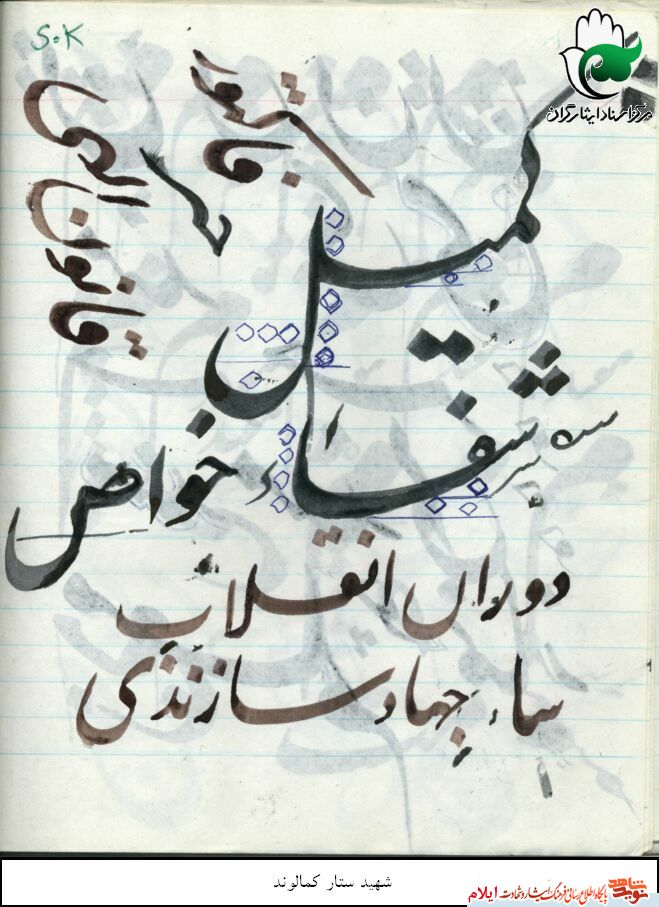 S.K
مرکز اسناد ایثارگران
فاکتور
قانون الهی
کمیل
شفاء
خواص
دوران انقلاب
سپاه جهاد سازندگی
شهید ستار کمالوند
نوید شاهد
پایگاه اطلاع رسانی فرهنگ ایثار و شهادت ایلام